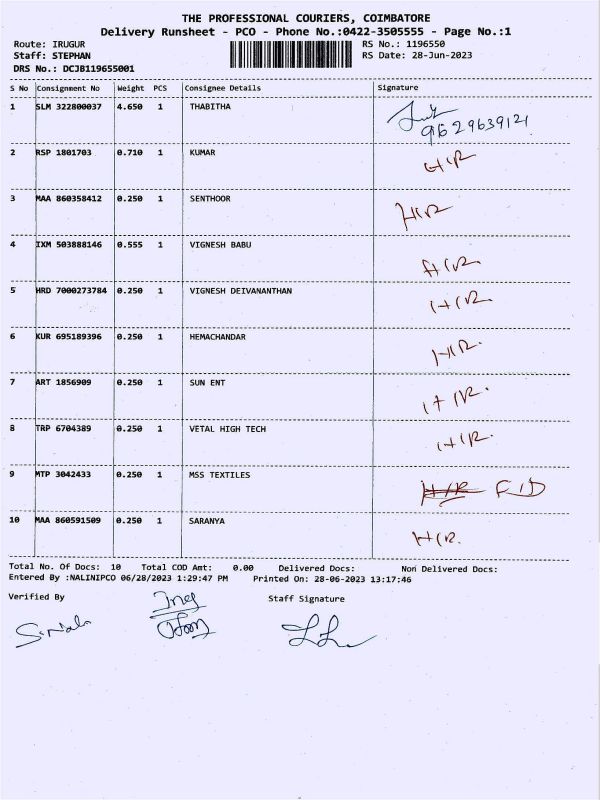 THE PROFESSIONAL COURIERS, COIMBATORE
Delivery Runsheet - PCO - Phone No.:0422-3505555 - Page No.:1
Route: IRUGUR RS No.: 1196550
Staff: STEPHAN RS Date: 28-Jun-2023
DRS No.: DCJB119655001
S No Consignment No Weight PCS Consignee Details Signature
1 SLM 322800037 4.650 1 THABITHA
9629639121
2 RSP 1801703 0.710 1 KUMAR HIR
3 MAA 860358412 0.250 1 SENTHOOR HIR
4 IXM 503888146 0.555 1 VIGNESH BABU HIR
5 HRD 7000273784 0.250 1 VIGNESH DEIVANANTHAN HIR
6 KUR 695189396 0.250 1 HEMACHANDAR HIR.
7 ART 1856909 0.250 1 SUN ENT HIR.
8 TRP 6704389 0.250 1 VETAL HIGH TECH HIR.
9 MTP 3042433 0.250 1 MSS TEXTILES HIR FID
10 MAA 860591509 0.250 1 SARANYA HIR.
Total No. Of Docs: 10 Total COD Amt: 0.00 Delivered Docs: Non Delivered Docs:
Entered By :NALINIPCO 06/28/2023 1:29:47 PM Printed On: 28-06-2023 13:17:46
Verified By Staff Signature